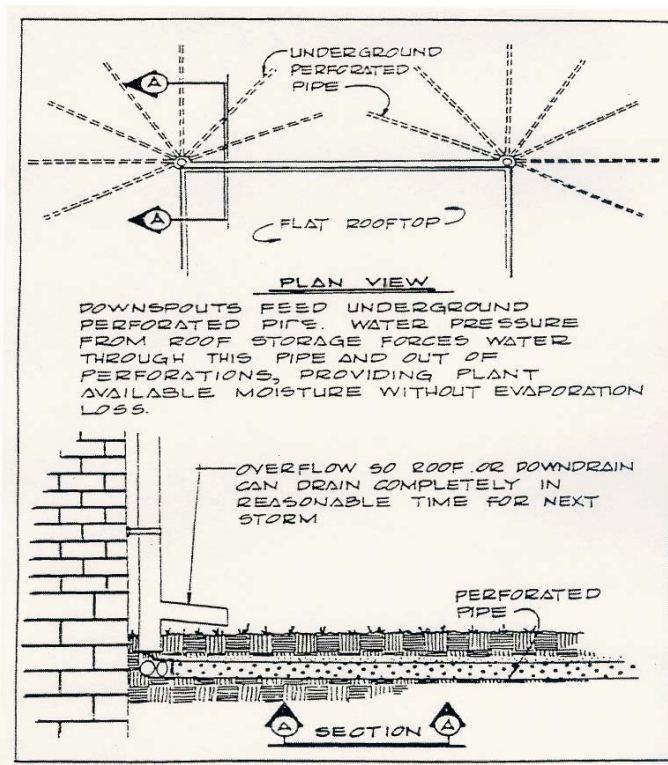 UNDERGROUND
PERFORATED
PIPE
A
A
FLAT ROOFTOP
PLAN VIEW
DOWNSPOUTS FEED UNDERGROUND
PERFORATED PIPE. WATER PRESSURE
FROM ROOF STORAGE FORCES WATER
THROUGH THIS PIPE AND OUT OF
PERFORATIONS, PROVIDING PLANT
AVAILABLE MOISTURE WITHOUT EVAPORATION
LOSS.
OVERFLOW SO ROOF OR DOWNDRAIN
CAN DRAIN COMPLETELY IN
REASONABLE TIME FOR NEXT
STORM
PERFORATED
PIPE
A SECTION A